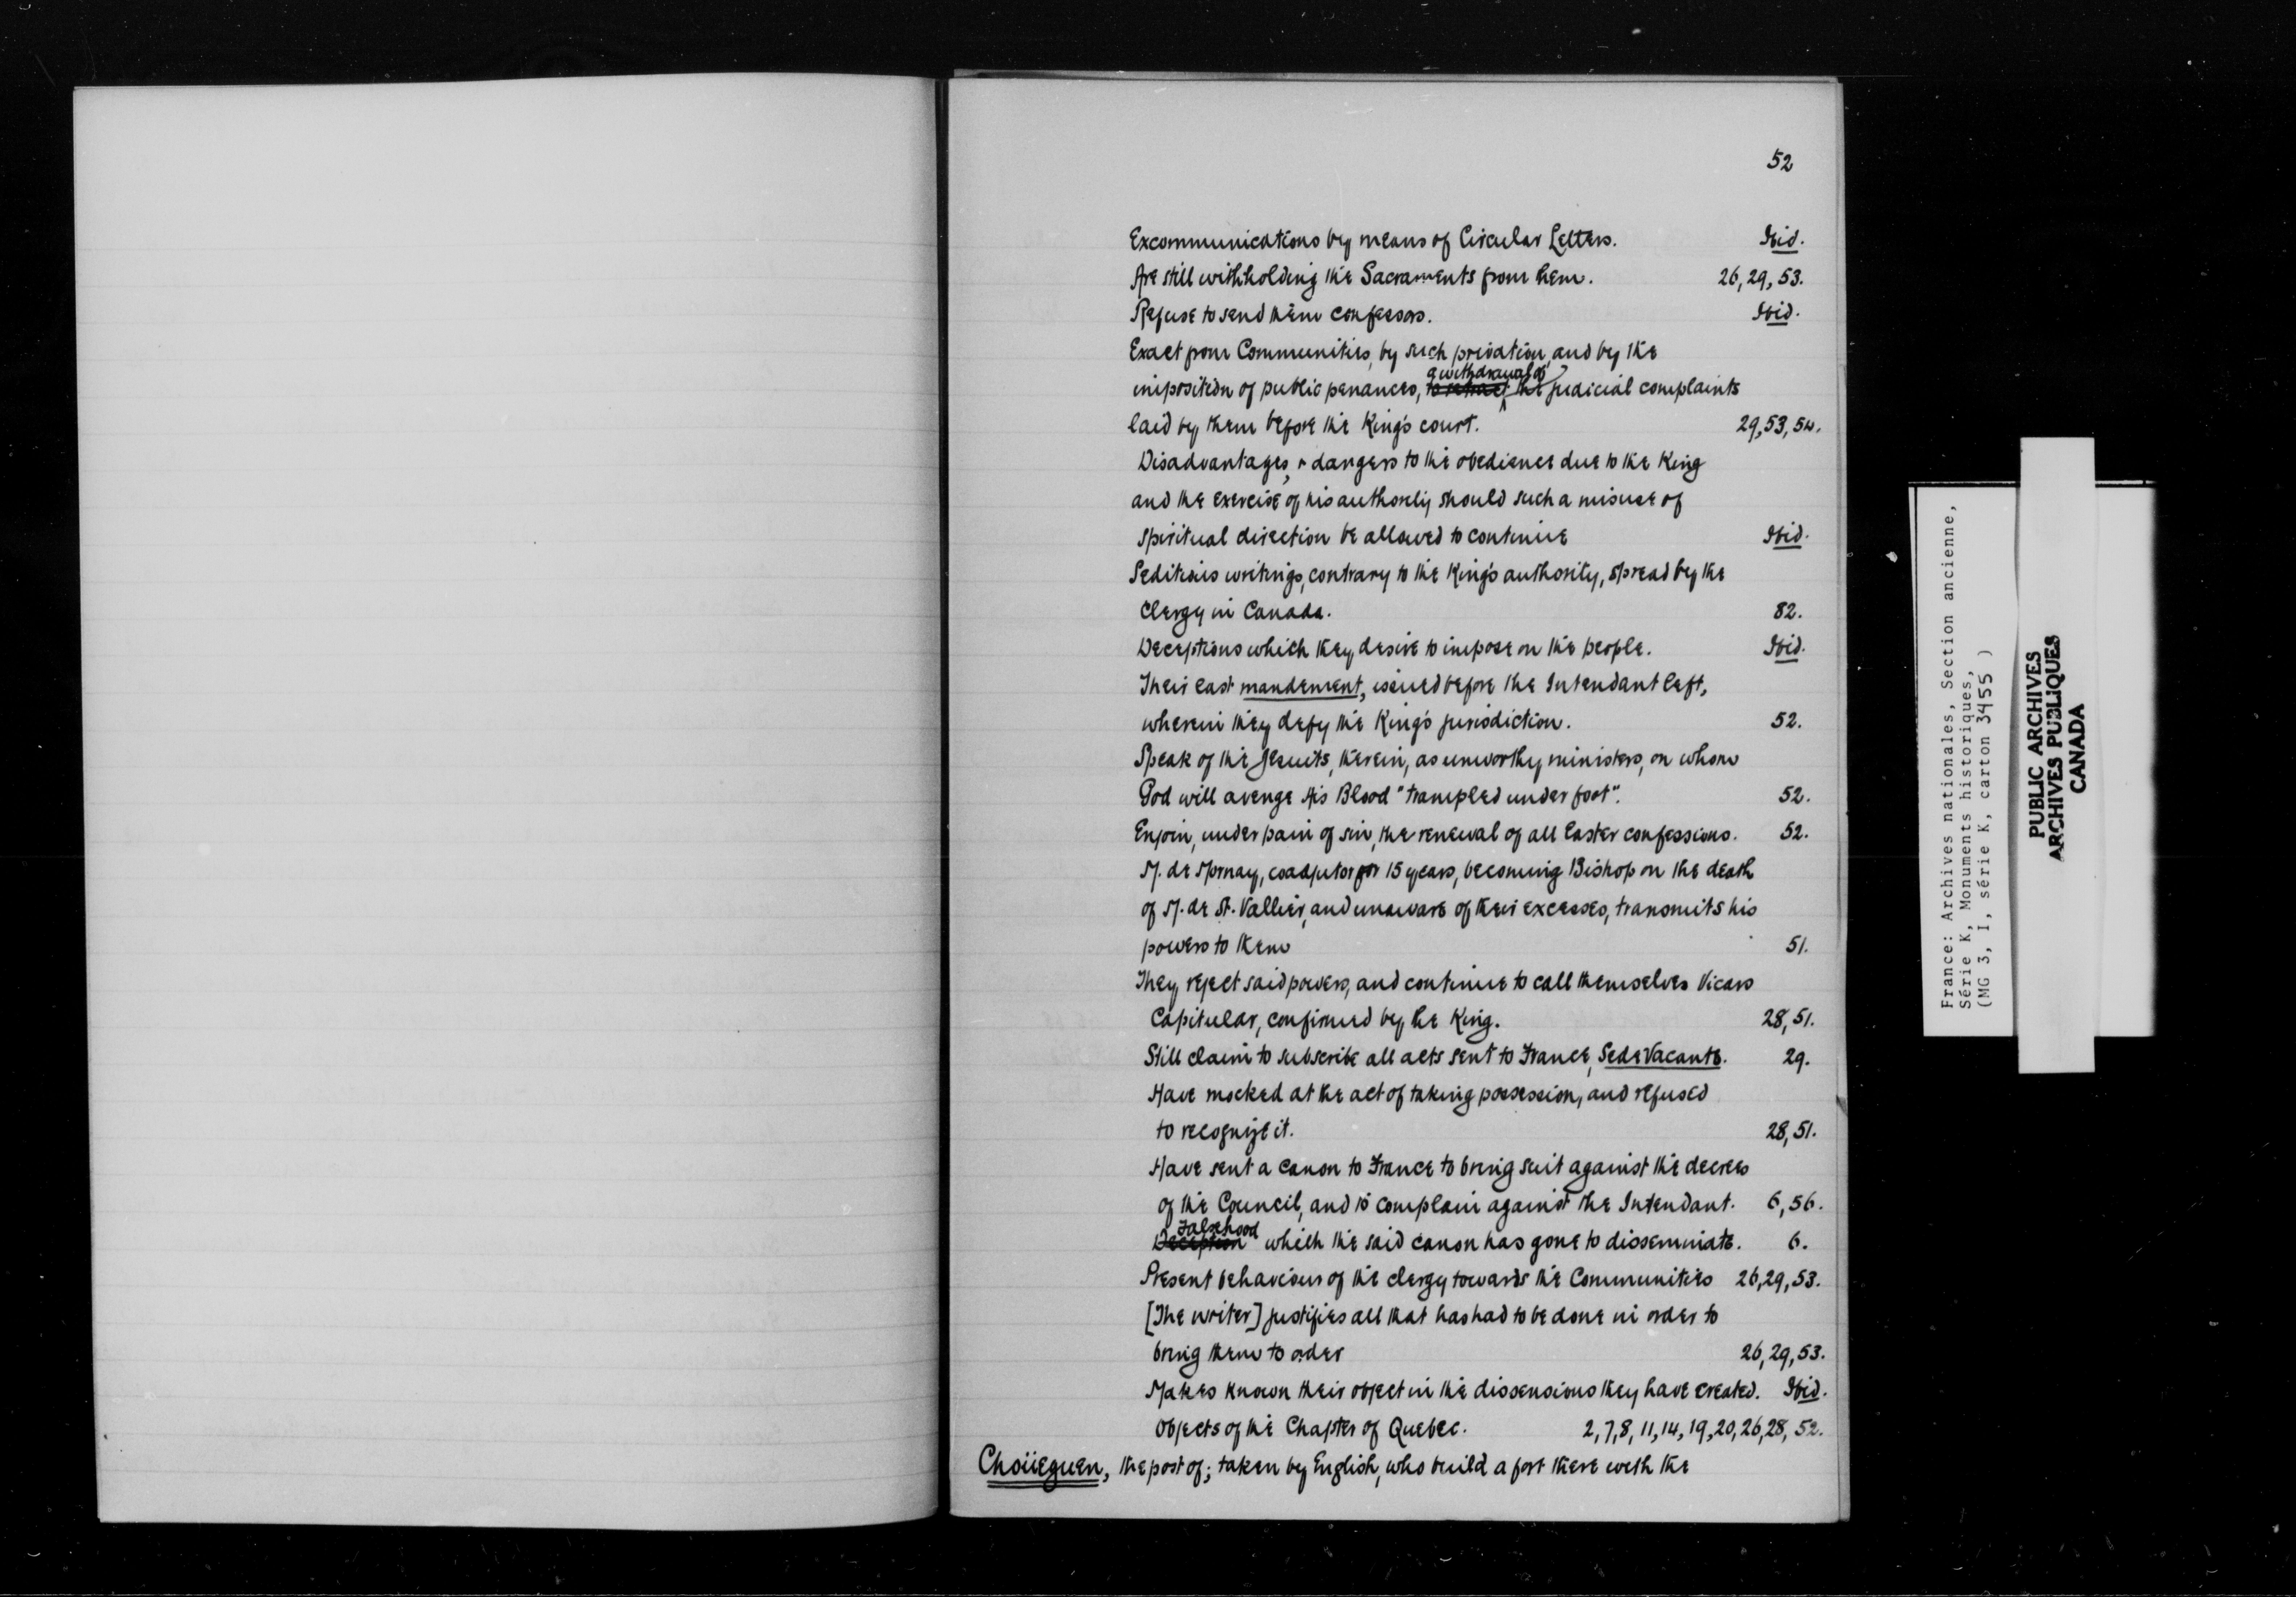 52
Excommunications by means of Circular Letters. Ibid.
Are still withholding the Sacraments from them. 26, 29, 53.
Refuse to send them confessors. Ibid.
Exact from Communities, by such privation, and by the
a withdrawal of
imposition of public penances, to retract the judicial complaints
laid by them before the King's court. 29, 53, 54.
Disadvantages, & dangers to the obedience due to the King
and the exercise of his authority should such a misuse of
spiritual direction be allowed to continue Ibid.
Seditious writings, contrary to the King's authority, spread by the
Clergy in Canada. 82.
Deceptions which they desire to impose on the people. Ibid.
Their last mandement, issued before the Intendant left,
wherein they defy the King's jurisdiction. 52.
Speak of the Jesuits, therein, as unworthy ministers, on whom
God will avenge His Blood "trampled under foot". 52.
Enjoin, under pain of sin, the renewal of all Easter confessions. 52.
M. de Mornay, coadjutor for 15 years, becoming Bishop on the death
of M. de St. Vallier, and unaware of their excesses, transmits his
powers to them 51.
They reject said powers, and continue to call themselves Vicars
Capitular, confirmed by the King. 28, 51.
Still claim to subscribe all acts sent to France, Sede Vacante. 29.
Have mocked at the act of taking possession, and refused
to recognize it. 28, 51.
Have sent a canon to France to bring suit against the decrees
of the Council, and to complain against the Intendant. 6, 56.
Falsehood
Deception which the said canon has gone to disseminate. 6.
Present behaviour of the clergy towards the Communities 26, 29, 53.
[The writer] justifies all that has had to be done in order to
bring them to order 26, 29, 53.
Makes known their object in the dissensions they have created. Ibid.
Objects of the Chapter of Quebec. 2, 7, 8, 11, 14, 19, 20, 26, 28, 52.
Choüeguen, the post of; taken by English, who build a fort there with the
France: Archives nationales, Section ancienne,
Série K, Monuments historiques,
(MG 3, I, série K, carton 3455 )
PUBLIC ARCHIVES
ARCHIVES PUBLIQUES
CANADA